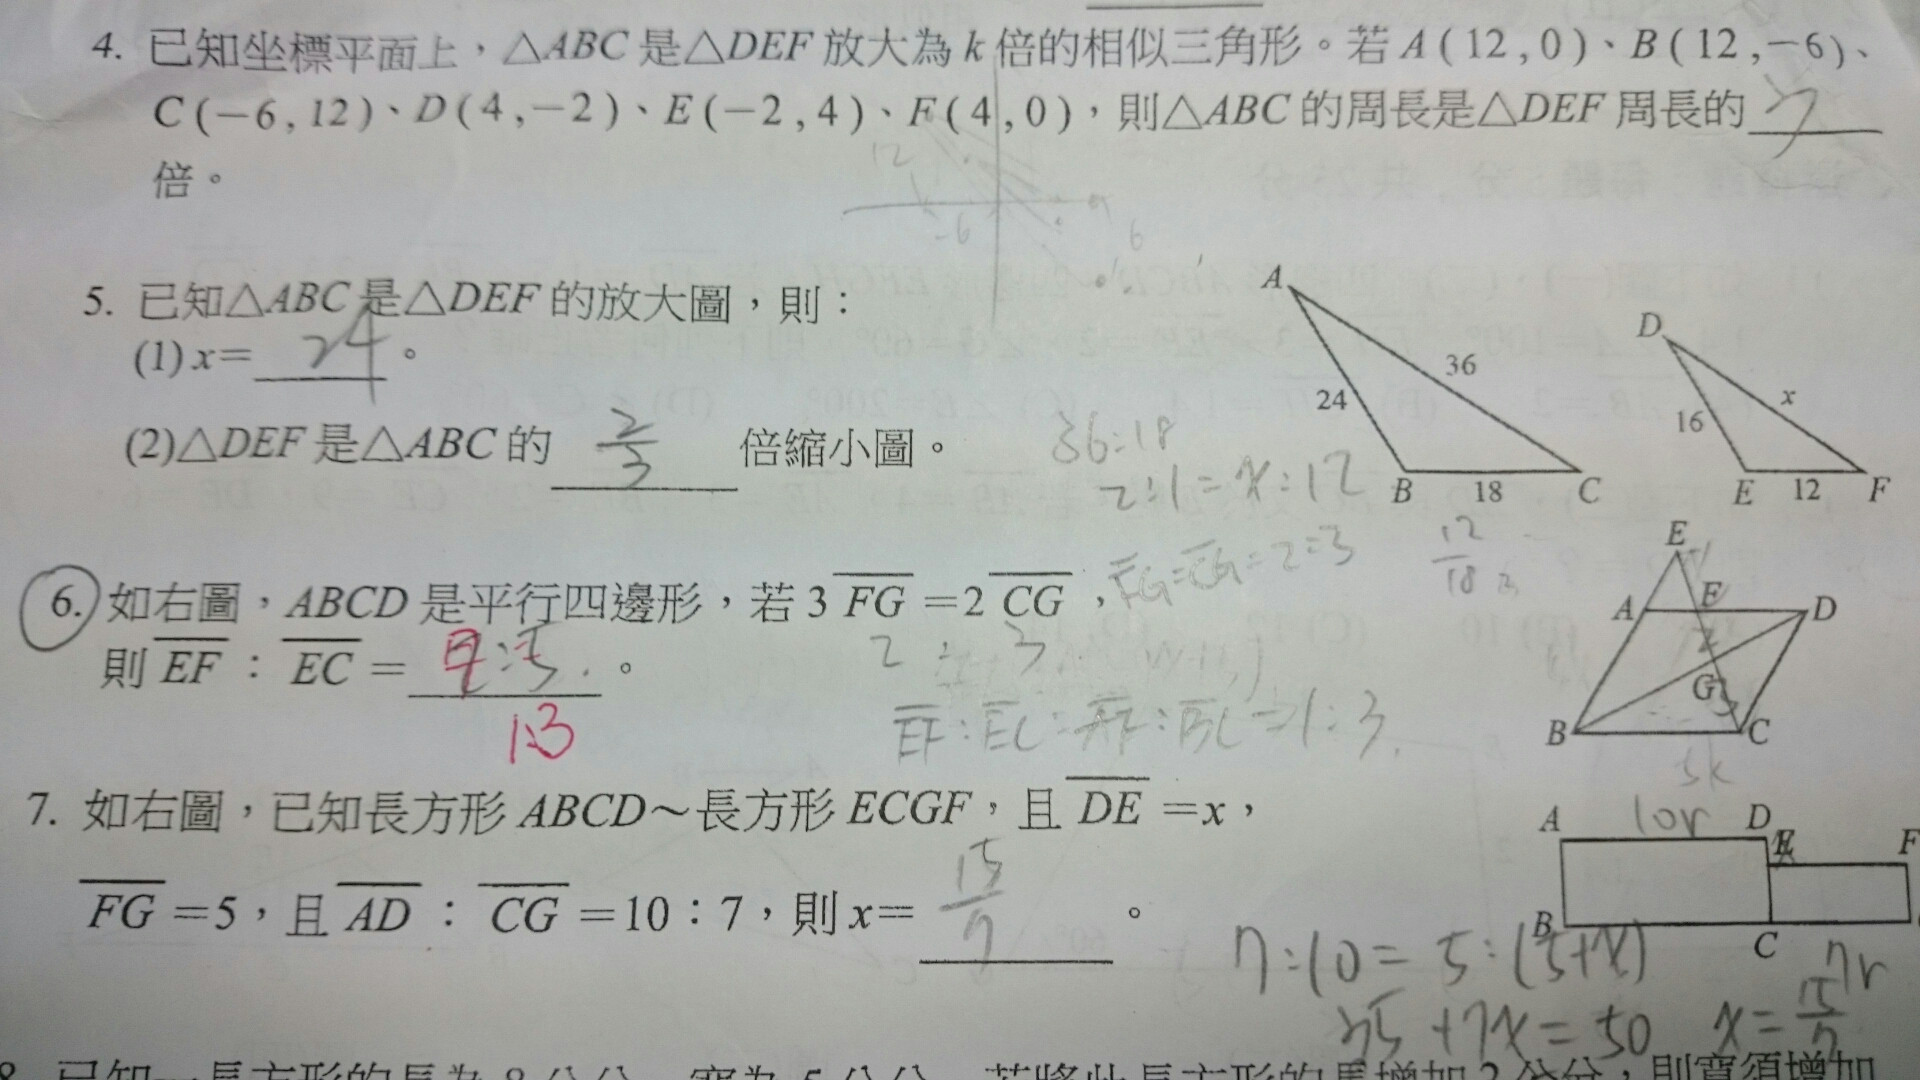 4. 已知坐標平面上，△ABC 是△DEF 放大為 k 倍的相似三角形。若 A(12,0)、B(12,−6)、
C(−6,12)、D(4,−2)、E(−2,4)、F(4,0)，則△ABC 的周長是△DEF 周長的
倍。
12
-6
6
5. 已知△ABC 是△DEF 的放大圖，則：
(1) x= 24 。
(2)△DEF 是△ABC 的 2/3 倍縮小圖。
36:18
2:1=x:12
12/18
A
24
36
B
18
C
D
16
x
E
12
F
6. 如右圖，ABCD 是平行四邊形，若 3 FG =2 CG ，
FG:CG=2:3
則 EF ： EC = 。
1:3
2 : 3
EF:EC=AF:BC=1:3
E
A
F
D
2
G
3
B
C
3k
7. 如右圖，已知長方形 ABCD～長方形 ECGF，且 DE =x，
FG =5，且 AD ： CG =10：7，則 x= 15/7 。
A
10r
D
E
F
B
C
7r
7:10=5:(5+x)
35+7x=50
x=15/7
8. 已知一長方形的長為 8 公分，寬為 5 公分，若將此長方形的長增加 2 公分，則寬須增加